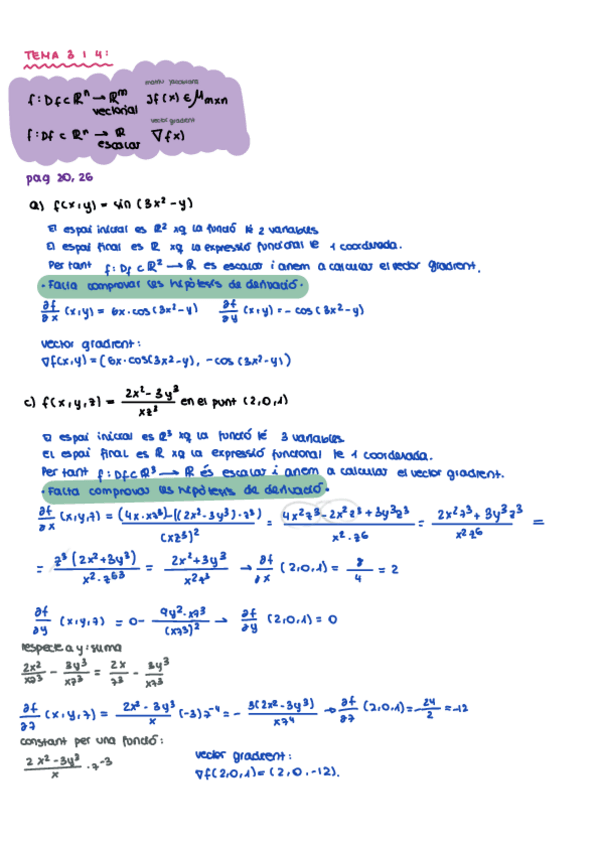 TEMA 3 I 4:
matriu jacobiana
f: Df ⊂ ℝⁿ → ℝᵐ Jf(x) ∈ μ mxn
vectorial
vector gradient
f: Df ⊂ ℝⁿ → ℝ ∇f(x)
escalar
pag 20, 26
a) f(x,y) = sin (3x²-y)
El espai inicial es ℝ² xq la funció té 2 variables
El espai final es ℝ xq la expressió funcional té 1 coordenada.
Per tant f: Df ⊂ ℝ² → ℝ es escalar i anem a calcular el vector gradient.
· Falta comprovar les hipòtesis de derivació ·
∂f/∂x (x,y) = 6x·cos(3x²-y) ∂f/∂y (x,y) = -cos(3x²-y)
vector gradient:
∇f(x,y) = (6x·cos(3x²-y), -cos(3x²-y))
c) f(x,y,z) = (2x²-3y³)/(xz³) en el punt (2,0,1)
El espai inicial es ℝ³ xq la funció té 3 variables
El espai final es ℝ xq la expressió funcional té 1 coordenada.
Per tant f: Df ⊂ ℝ³ → ℝ és escalar i anem a calcular el vector gradient.
· Falta comprovar les hipòtesis de derivació ·
∂f/∂x (x,y,z) = ((4x·xz³)-((2x²-3y³)·z³))/(xz³)² = (4x²z³-2x²z³+3y³z³)/(x²·z⁶) = (2x²z³+3y³z³)/(x²z⁶) =
= z³(2x²+3y³)/(x²·z⁶³) = (2x²+3y³)/(x²z³) → ∂f/∂x (2,0,1) = 8/4 = 2
∂f/∂y (x,y,z) = 0- (9y²·xz³)/(xz³)² → ∂f/∂y (2,0,1) = 0
respecte a y: suma
2x²/xz³ - 3y³/xz³ = 2x/z³ - 3y³/xz³
∂f/∂z (x,y,z) = (2x²-3y³)/x (-3)z⁻⁴ = - 3(2x²-3y³)/xz⁴ → ∂f/∂z (2,0,1) = -24/2 = -12
constant per una funció:
(2x²-3y³)/x · z⁻³
vector gradient:
∇f(2,0,1) = (2,0,-12).